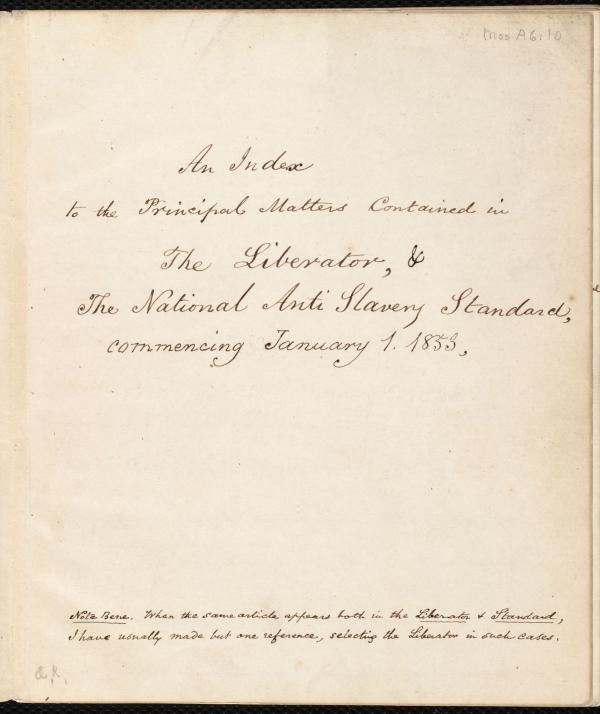 Mss A 6:10
An Index
to the Principal Matters Contained in
The Liberator, &
The National Anti Slavery Standard,
commencing January 1. 1853,
Note Bene. When the same article appears both in the Liberator & Standard,
I have usually made but one reference, selecting the Liberator in such cases.